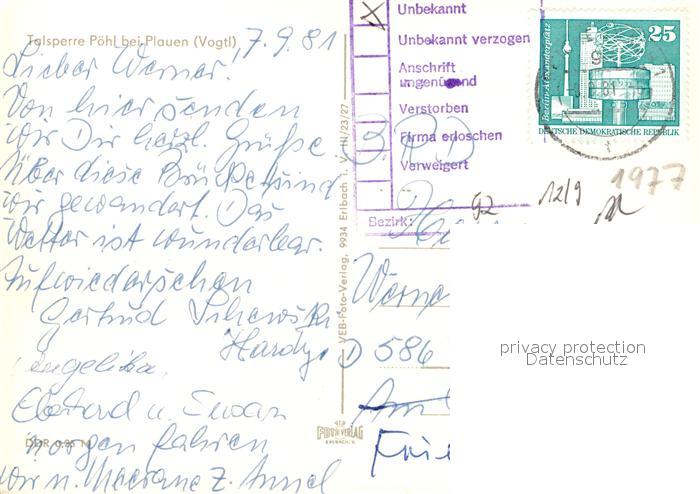 Talsperre Pöhl bei Plauen (Vogtl)
7.9.81
Lieber Werner.
Von hier senden
wir Dir herzl. Grüße
Über diese Brücke sind
wir gewandert. Das
Wetter ist wunderbar.
Aufwiedersehen
Gertrud
Hardy,
Angelika,
Eberhard u.
morgen fahren
wir n. z.
DDR 0,25 M
VEB-Foto-Verlag, 9934 Erlbach 1. V III/23/27
FOTO-VERLAG
ERLBACH
Unbekannt
Unbekannt verzogen
Anschrift
ungenügend
Verstorben
Firma erloschen
Verweigert
Bezirk:
92
12/9
1977
BRD
Werne
D 586
Am
Berlin-Alexanderplatz
25
DEUTSCHE DEMOKRATISCHE REPUBLIK
privacy protection
Datenschutz